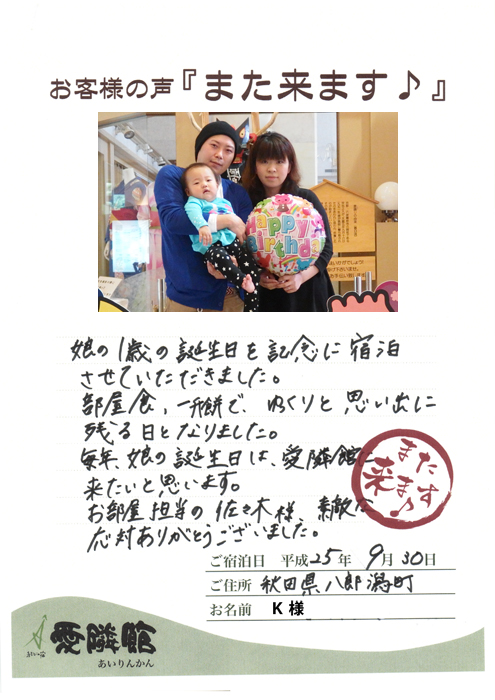 お客様の声『また来ます♪』
Happy
Birthday
娘の1歳の誕生日を記念に宿泊
させていただきました。
部屋食、一升餅で、ゆくりと思い出に
残る日となりました。
毎年、娘の誕生日は、愛隣館に
来たいと思います。
お部屋担当の佐々木様、素敵な
応対ありがとうございました。
また
来ます♪
ご宿泊日 平成25年 9月30日
ご住所 秋田県八郎潟町
お名前 K様
愛隣館
あいりんかん